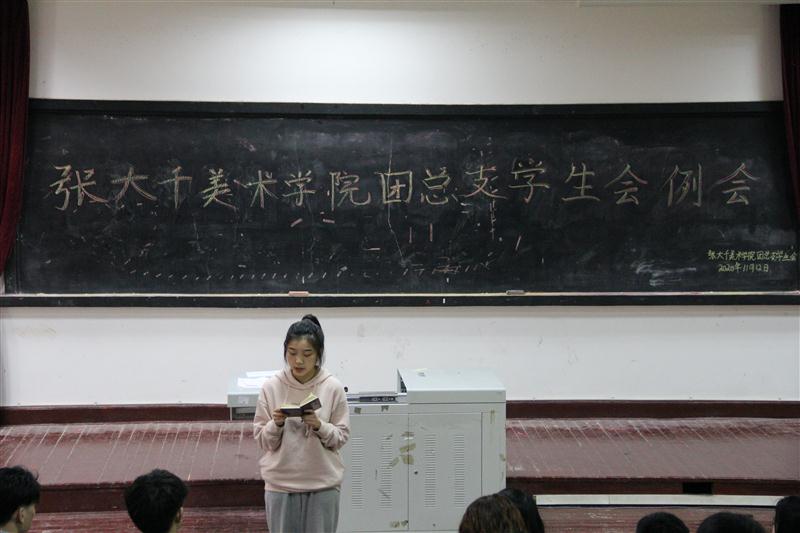 张大千美术学院团总支学生会例会
张大千美术学院团总支学生会
2020年11月12日